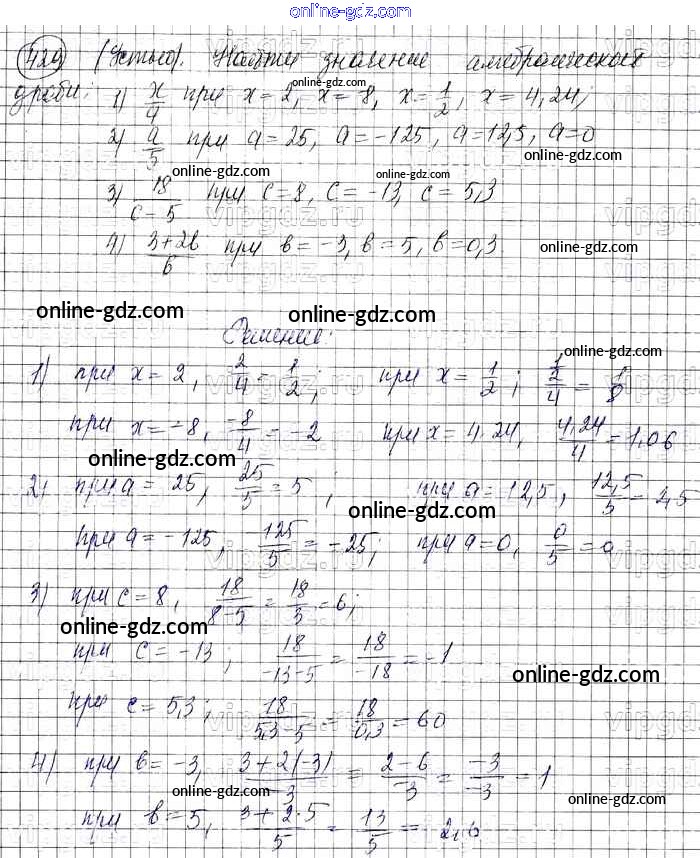 online-gdz.com
429 (Устно). Найти значение алгебраической
дроби: 1) x/4 при x = 2, x = -8, x = 1/2, x = 4,24;
online-gdz.com
2) a/5 при a = 25, a = -125, a = 12,5, a = 0
online-gdz.com
online-gdz.com online-gdz.com
3) 18/(c-5) при c = 8, c = -13, c = 5,3
vipgdz.ru
4) (3+2b)/b при b = -3, b = 5, b = 0,3
online-gdz.com
online-gdz.com online-gdz.com
Решение:
online-gdz.com
1) при x = 2, 2/4 = 1/2; при x = 1/2; (1/2)/4 = 1/8
при x = -8, -8/4 = -2 при x = 4.24, 4,24/4 = 1,06
online-gdz.com
2) при a = 25, 25/5 = 5; при a = 12,5, 12,5/5 = 2,5
online-gdz.com
при a = -125, -125/5 = -25; при a = 0, 0/5 = 0
3) при c = 8, 18/(8-5) = 18/3 = 6;
online-gdz.com
при c = -13; 18/(-13-5) = 18/-18 = -1
online-gdz.com
при c = 5,3; 18/(5,3-5) = 18/0,3 = 60
4) при b = -3, (3+2(-3))/-3 = (2-6)/-3 = -3/-3 = 1
online-gdz.com
online-gdz.com
при b = 5, (3+2·5)/5 = 13/5 = 2,6